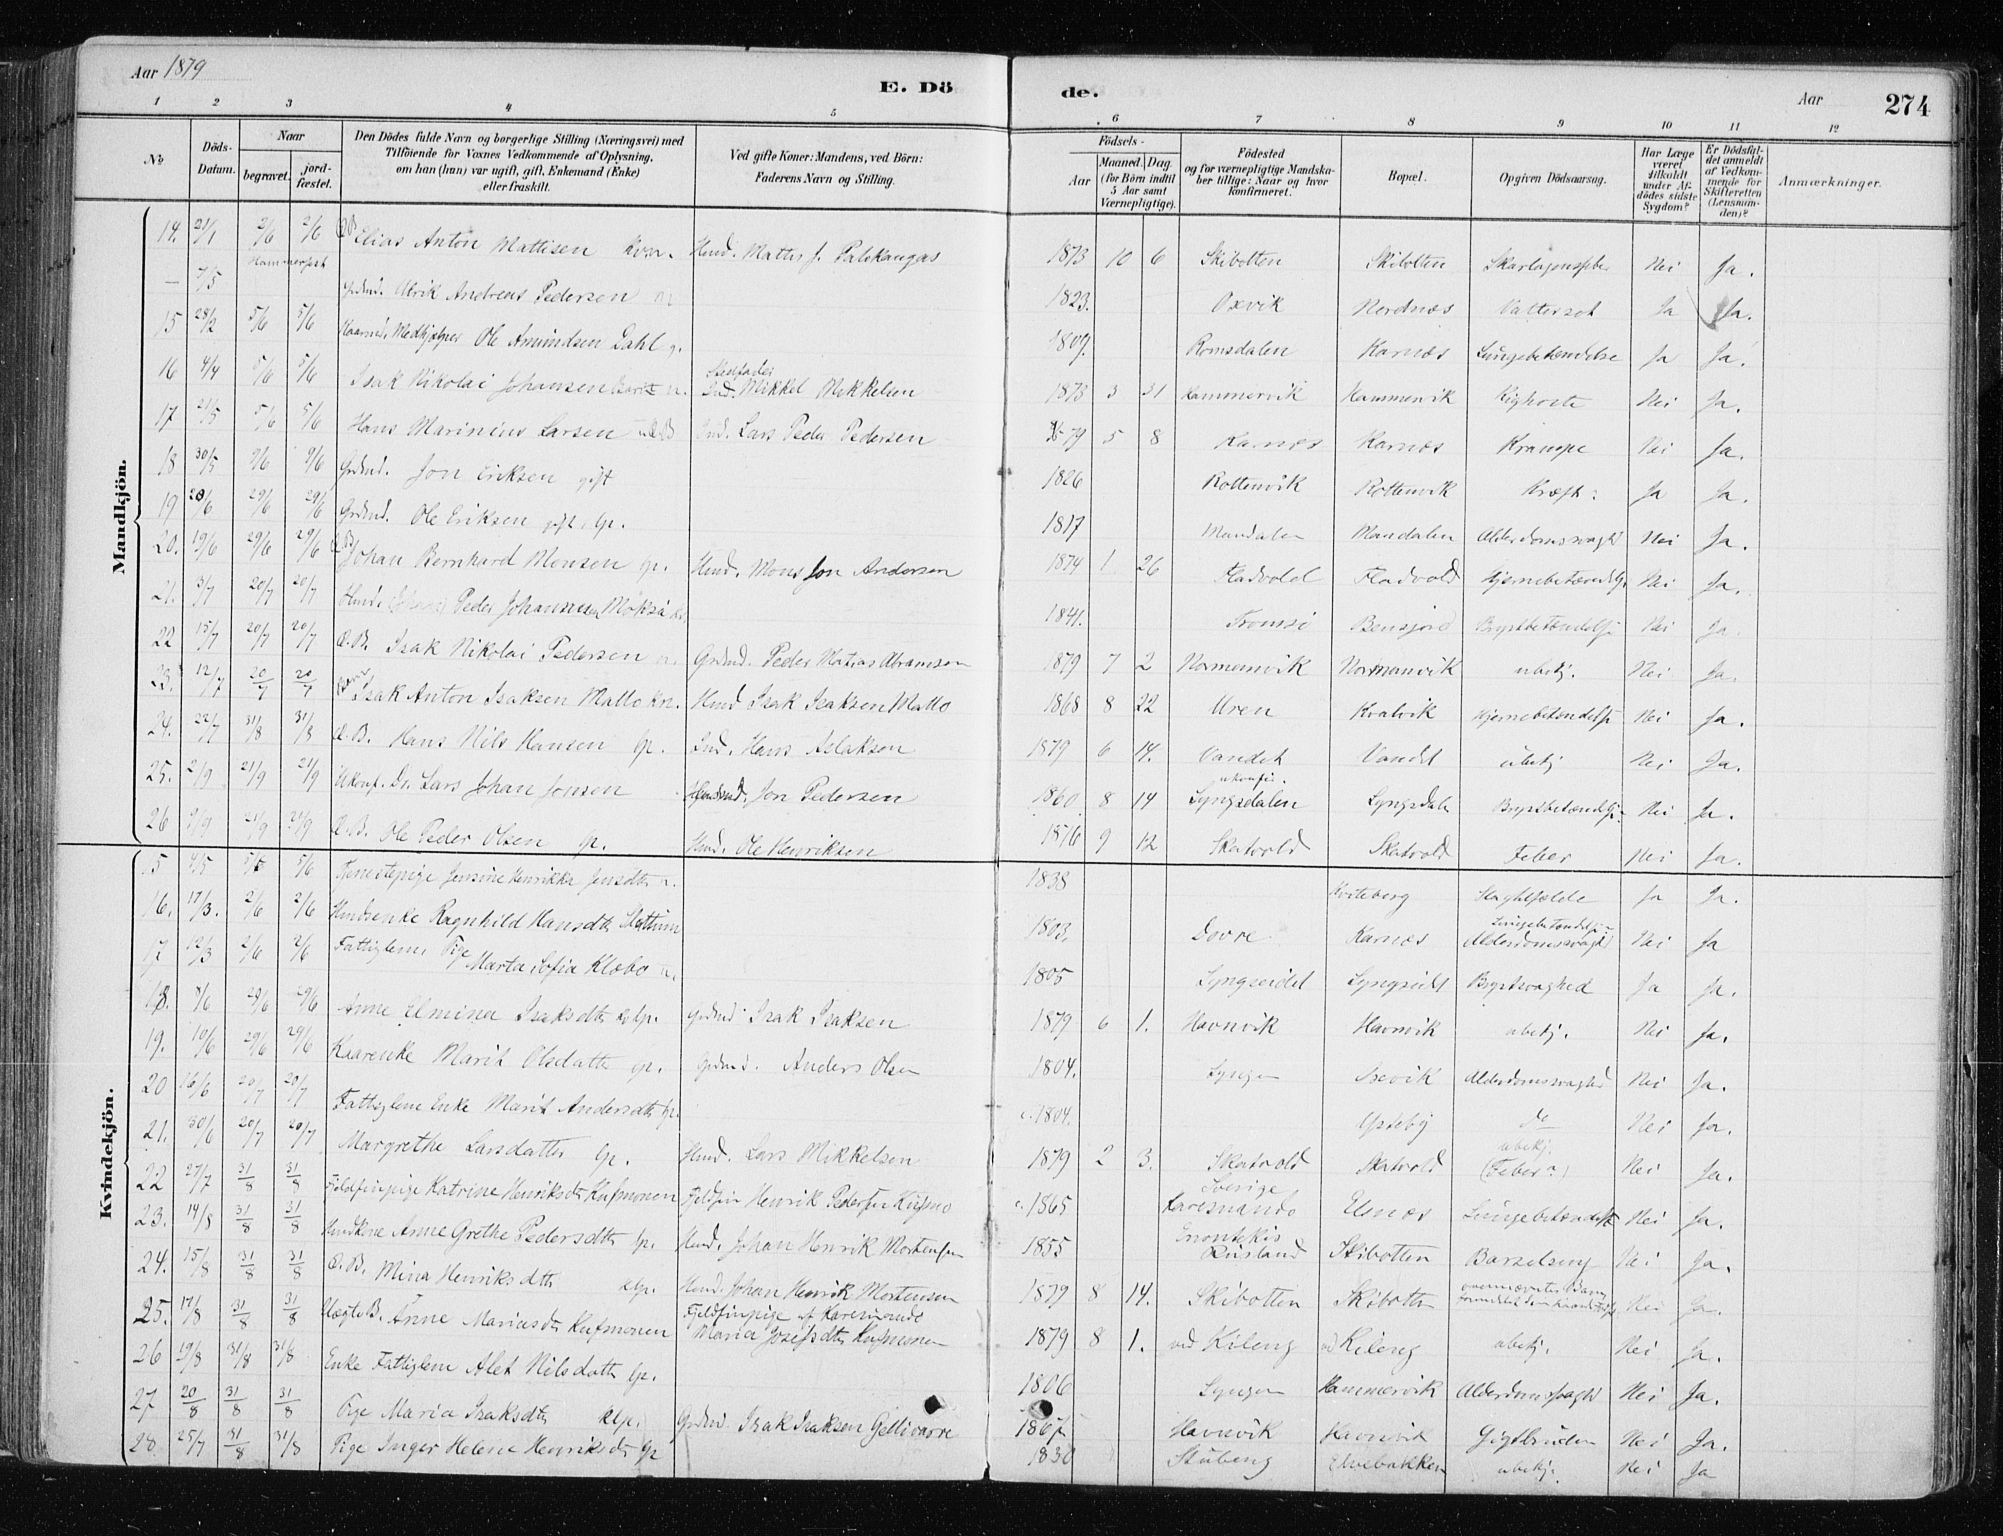 Aar 1879 E. Dö de. Aar 274
1 2 3 4 5 6 7 8 9 10 11 12
No
Döds-Datum.
Naar
begravet.
jord-fæstet.
Den Dödes fulde Navn og borgerlige Stilling (Næringsvei) med
Tilföiende for Voxnes Vedkommende af Oplysning,
om han (hun) var ugift, gift, Enkemand (Enke)
eller fraskilt.
Ved gifte Koner: Mandens, ved Börn:
Faderens Navn og Stilling.
Födsels-
Aar
Maaned. Dag.
(for Börn indtil
5 Aar samt
Værnepligtige).
Födested
og for værnepligtige Mandska-
ber tillige: Naar og hvor
konfirmeret.
Bopæl.
Opgiven Dödsaarsag.
Har Læge
været
tilkaldt
under Af-
dödes sidste
Sygdom?
Er Dödsfal-
det anmeldt
af Vedkom-
mende for
Skifteretten
(Lensman-
den)?
Anmærkninger.
Mandkjön.
14. 21/1 2/6 2/6 Elias Anton Mattisen kvn. Huud. Mattis J. Palokangas 1873 10 6 Skibotten Skibotten Nei Ja.
— 7/5 Hammerfest Ulrik Andreas Pedersen 1823. Oxvik Nordnæs Vattersot Ja Ja.
15 28/2 5/6 5/6 Ole Amundsen Dahl g. 1809. Romsdalen Karnæs Lungebetændelse Ja Ja.
16 4/4 5/6 5/6 Isak Nikolai Johansen n. Stedfader Ind. Mikkel Mikkelsen 1873 3 31 Kammervik Kammervik Kighoste Nei Ja.
17 21/5 5/6 5/6 Hans Marinius Larsen Ind. Lars Peder Pedersen 79 5 8 Karnæs Karnæs Krampe Nei Ja.
18 30/5 9/6 9/6 Grdmd. Jon Eriksen gift 1826 Rottenvik Rottenvik Kræft Ja Ja.
19 20/6 29/6 29/6 Grdmd. Ole Eriksen gift. lp. 1817 Mandalen Mandalen Alderdomssvaghd Nei Ja.
20. 19/6 29/6 29/6 Johan Bernhard Monsen lp. Huud. Mons Jon Andersen 1874 1 26 Fladvold Fladvold Hjernebetændelse Nei Ja.
21. 3/7 20/7 20/7 Peder Johannesen 1841. Tromsö Bensjord Brystbetændelse Nei Ja.
22 15/7 20/7 20/7 Æ.B. Isak Nikolai Pedersen n. Grdmd. Peder Matias Abramsen 1879 7 2 Normanvik Normanvik ubekj. Nei Ja.
23. 12/7 20/7 20/7 Isak Anton Isaksen Mallo kn. Huud Isak Isaksen Mallo 1868 8 22 Uren Kvalvik Hjernebetændelse Nei Ja.
24. 22/7 31/8 31/8 Æ.B. Hans Nils Hansen lp. Ind. Hans Aslaksen 1879 6 14. Vandet Vandet ubekj. Nei Ja.
25. 2/9 21/9 21/9 Ukonf. Dr. Lars Johan Jonsen Jon Pedersen 1860. 8 14 ukonfi. Lyngsdalen Lyngsdale Brystbetændelse Nei Ja.
26 9/9 21/9 21/9 Æ.B. Ole Peder Olsen lp. Huud. Ole Henriksen 1876 9 12 Skatvold Skatvold Feber Nei Ja.
Kvindekjön.
15 5/6 Tjenestepige Jensine Henrikke Jensdtr n. 1838 Kviteberg Ja Ja.
16. 17/3. 2/6 2/6 Huudsenke Ragnhild Hansdtr 1803. Dovre Karnæs Lungebetændelse Alderdomssvaghd Nei Ja
17 12/3 2/6 2/6 Fattiglem, Pige Marta Sofia Klæbo n. 1805 Lyngseidet Lyngseidet Brystsvaghed Ja Ja.
18. 8/6 29/6 29/6 Anne Elmina Isaksdtr Grdmd Isak Isaksen 1879 6 1. Havnvik Havnvik ubekj. Nei Ja.
19. 10/6 29/6 29/6 Kaarenke Marit Olsdatter lp. Grdmd. Anders Olsen 1804. Lyngen Alderdomssvaghd Nei Ja.
20 16/6 20/7 20/7 Fattiglem Enke Marit Andersdtr lp. c. 1804. Ysteby do Nei Ja.
21. 30/6 20/7 20/7 Margrethe Larsdatter lp. Huud. Lars Mikkelsen 1879 2 3. Skatvold Skatvold ubekj. (Feber?) Nei Ja.
22 27/7 31/8 31/8 Fjeldfinpige Katrine Henriksdtr Kufmonen Fjeldfin Henrik Pedersen c. 1865 Sverige Karesuando Elsnæs Lungebetændelse Nei Ja.
23. 14/8 31/8 31/8 Huudkone Anne Grethe Pedersdtr lp. Huud. Johan Henrik Mortensen 1855 Enontekis Rusland Skibotten Barselseng Nei Ja.
24. 15/8 31/8 31/8 Æ.B. Mina Henriksdtr Huud. Johan Henrik Mortensen 1879 8 14. Skibotten Skibotten Nei Ja.
25. 17/8 31/8 31/8 Uægte B. Anne Mariasdtr Kufmonen Fjeldfinpige af Karesuando Maria Josefsdtr Kufmonen 1879 8 1. ved Kileng ved Kileng ubekj. Nei Ja.
26 19/8 31/8 31/8 Enke Fattiglem Alet Nilsdatter lp. 1806 Lyngen Kammervik Alderdomssvaghd Nei Ja.
27 20/8 31/8 31/8 Pige Maria Isaksdtr Grdmd. Isak Isaksen Gellivarre Havnvik Havnvik Gigtbruden Nei Ja.
28. 25/7 31/8 31/8 Pige Inger Helene Henriksdtr lp 1830 Stubeng Elvebakken ubekj. Nei Ja